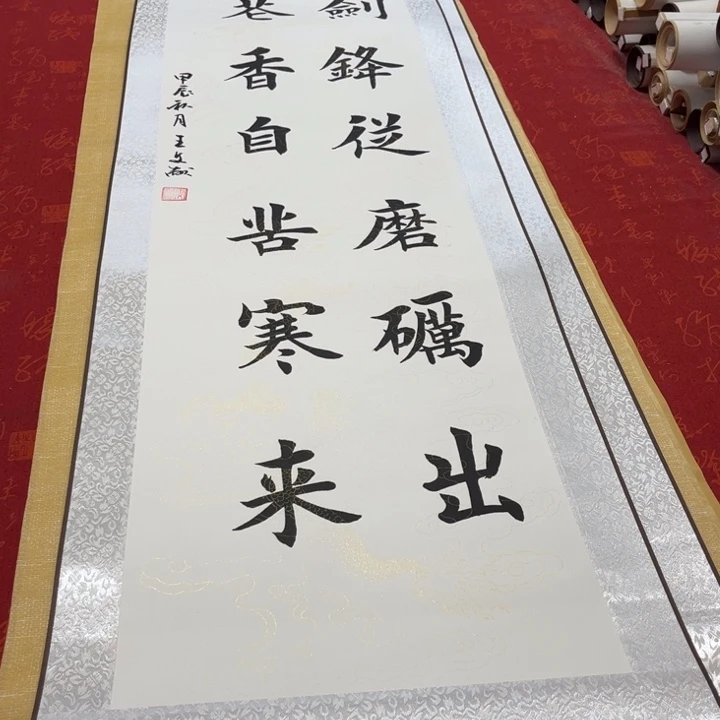 劍鋒從磨礪出
花香自苦寒来
甲辰秋月 王文